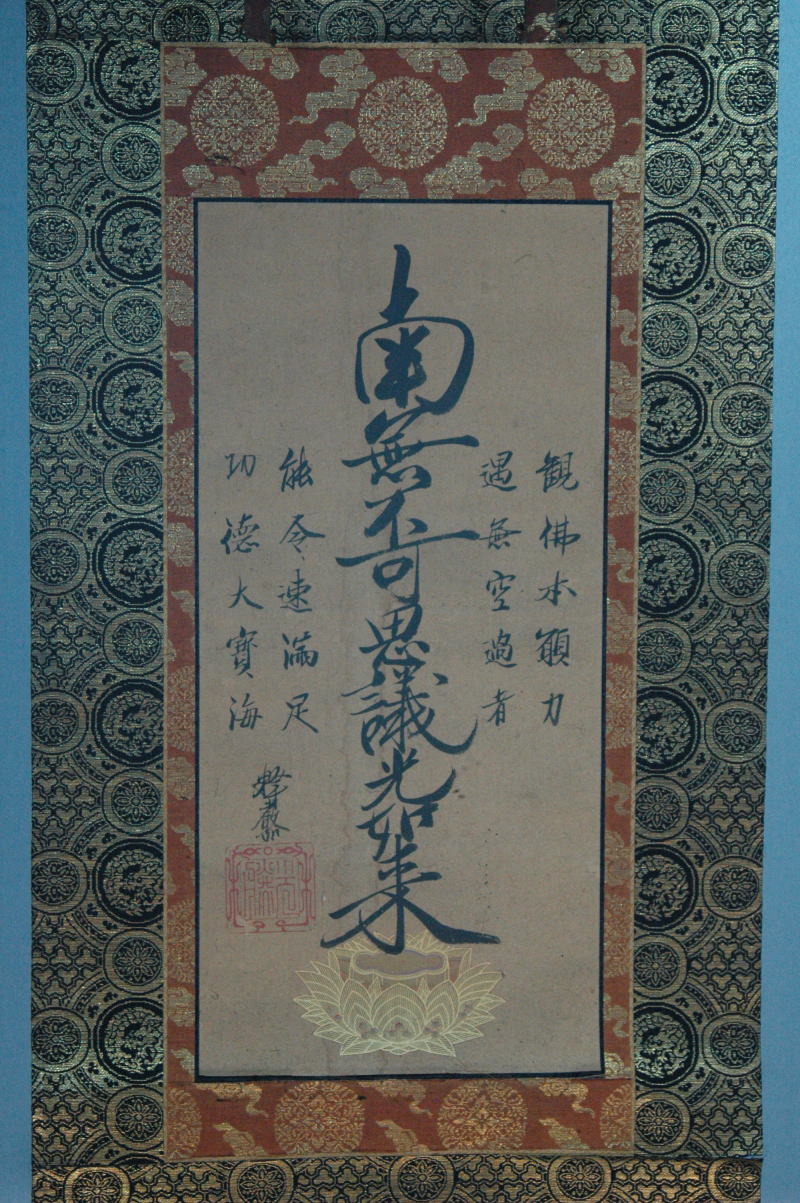 觀佛本願力
遇無空過者
南無不可思議光如来
能令速満足
功德大寳海